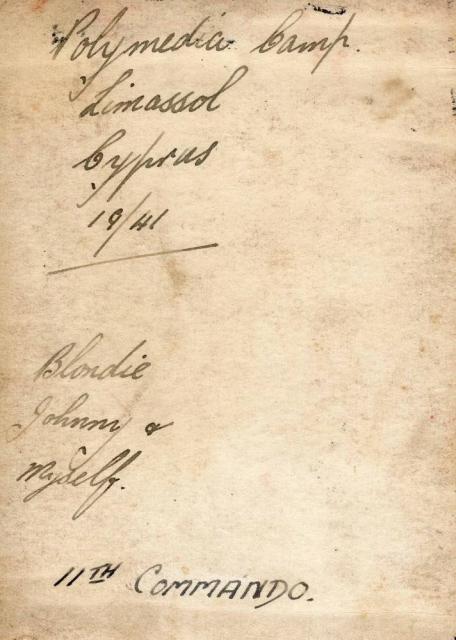 Polymedia Camp.
Limassol
Cyprus
19/41
Blondie
Johnny &
Myself.
11TH COMMANDO.